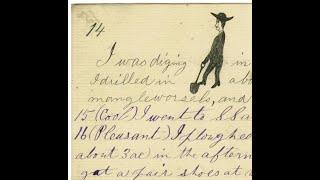 14
I was diging in
I drilled in ab
mangleworsels, and
15 (Cool) I went to S S a
16 (Pleasant) I ploughed
about 3ac) in the aftern
got a pair shoes at